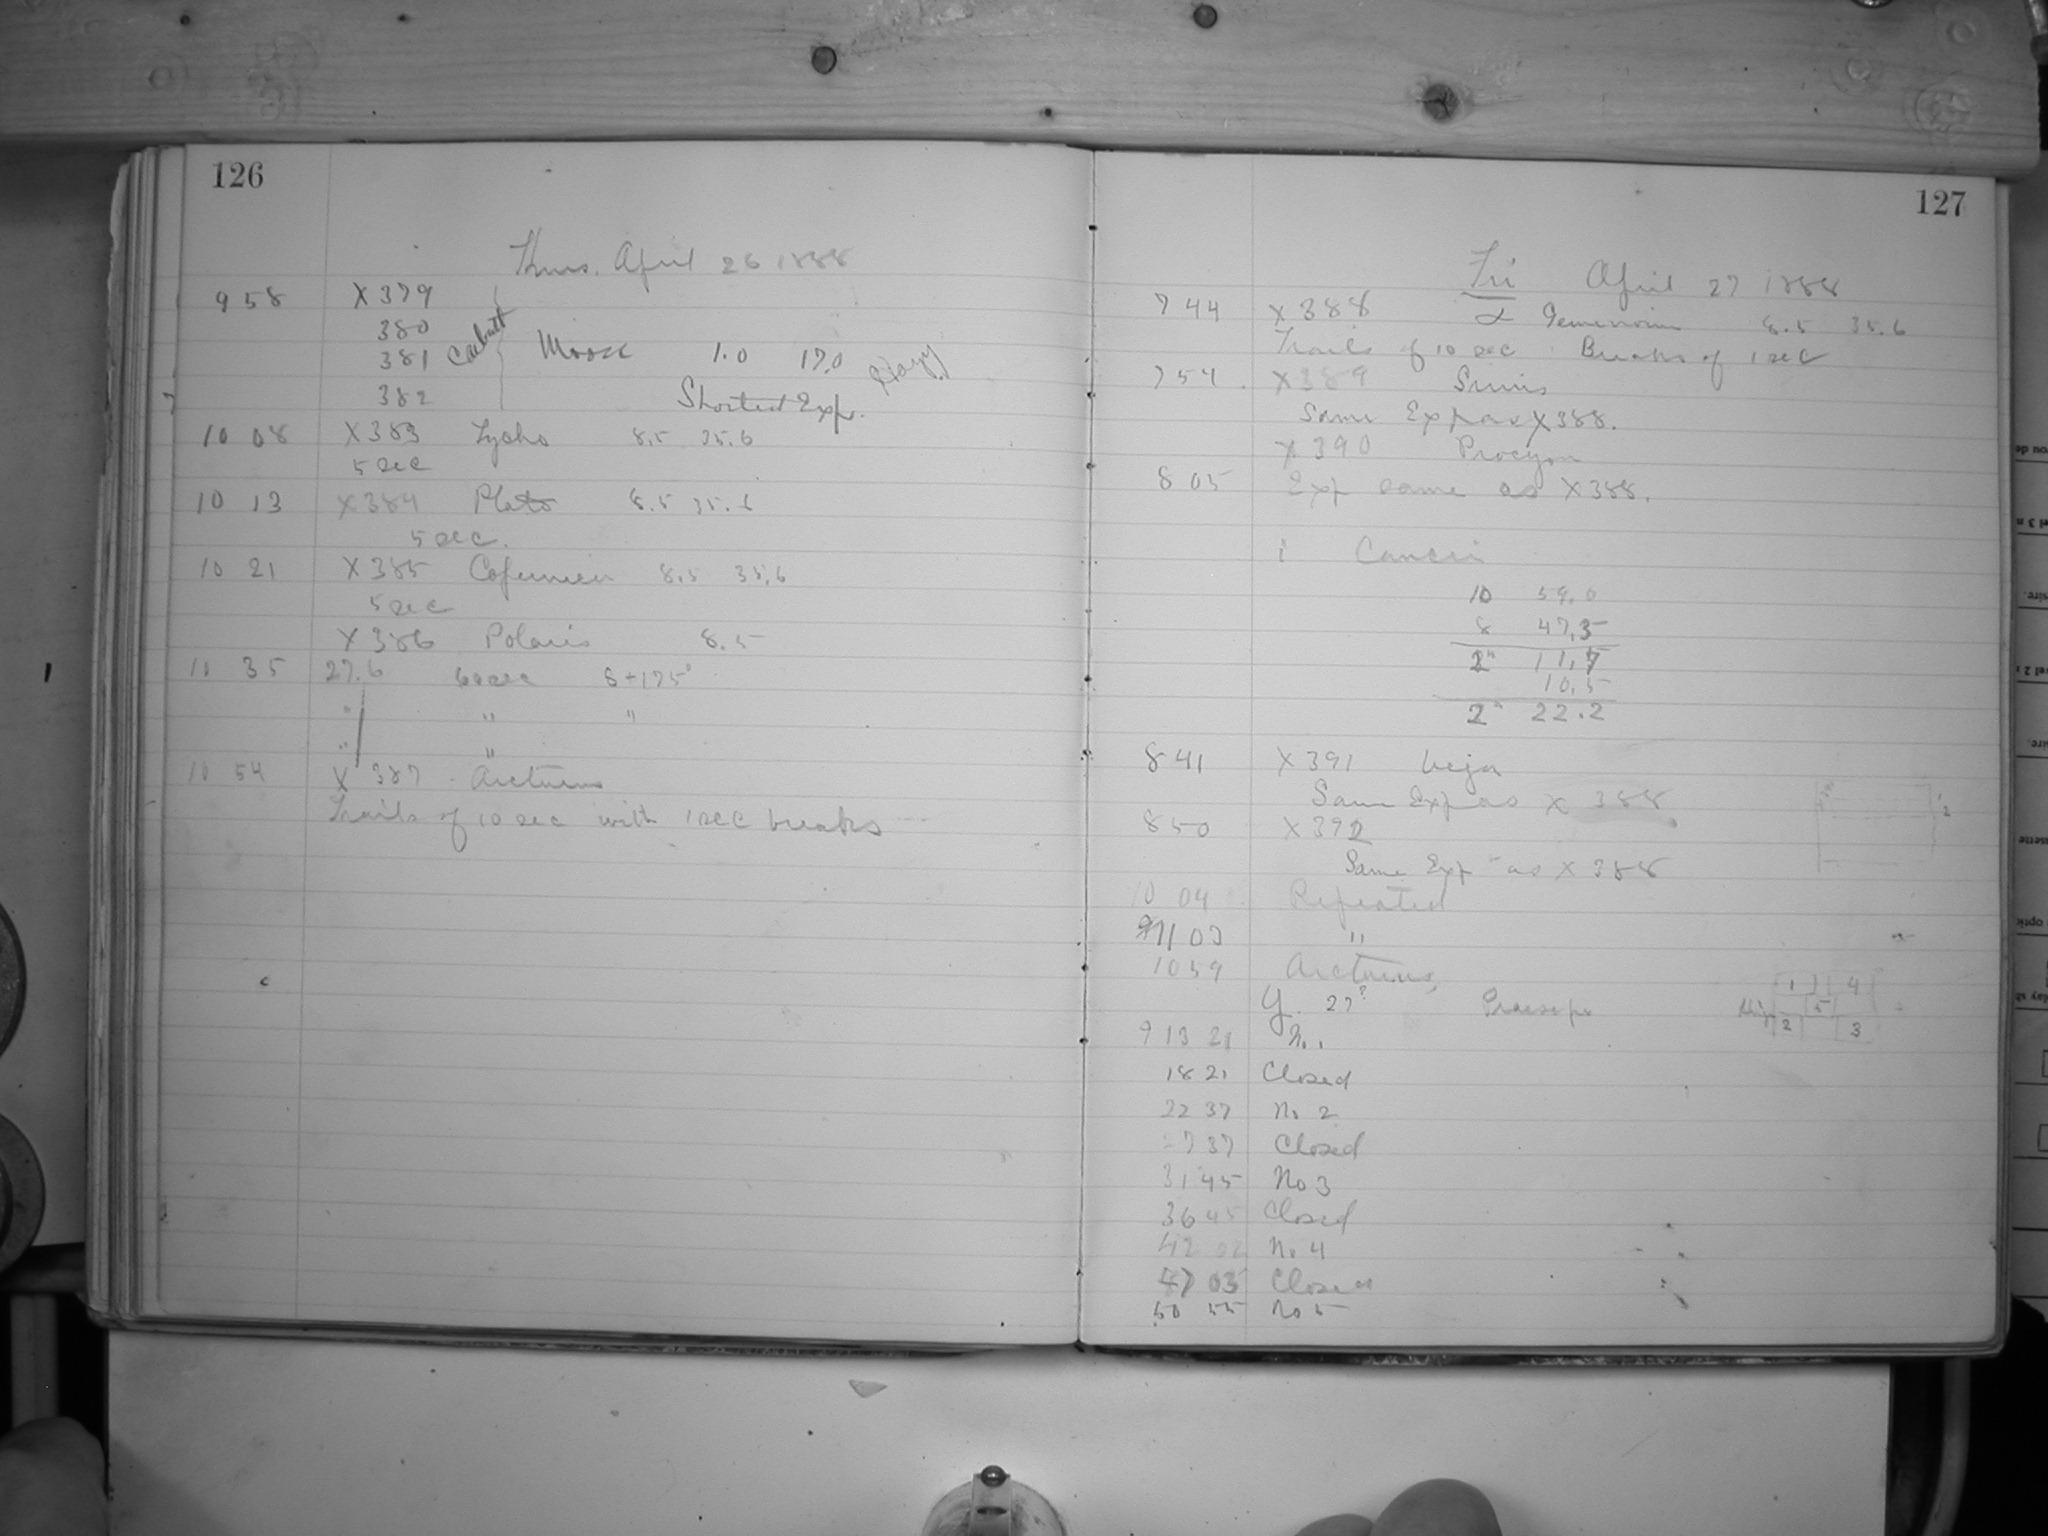 126
Thurs. April 26 1888
9 58 X 379
380
381 Carbutt Moon 1.0 17.0 Hazy
382 Shortest Exp.
10 08 X 383 Tycho 8.5 35.6
5 sec
10 13 X 384 Plato 8.5 35.6
5 sec.
10 21 X 385 8.5 35.6
5 sec
X 386 Polaris 8.5
11 35 27.6 60 sec
" " "
" "
10 54 X 387 Arcturus
Trails of 10 sec with 1 sec breaks
127
Fri April 27 1888
7 44 X 388 α 8.5 35.6
Trails of 10 sec Breaks of 1 sec
7 54 X 389
Same Exp as X 388.
X 390 Procyon
8 05 Exp same as X 388.
i Cancri
10 59.0
8 47.5
2" 11.7
10.5
2" 22.2
8 41 X 391 Vega
Same Exp as X 388
8 50 X 392
Same Exp as X 388
10 04 Repeated
11 03 "
10 59 Arcturus
Y. 27? Praesepe
1 4
5
2 3
9 13 21 No. 1
18 21 Closed
22 37 No 2
27 37 Closed
31 45 No 3
36 45 Closed
42 02 No 4
47 03 Closed
50 55 No 5